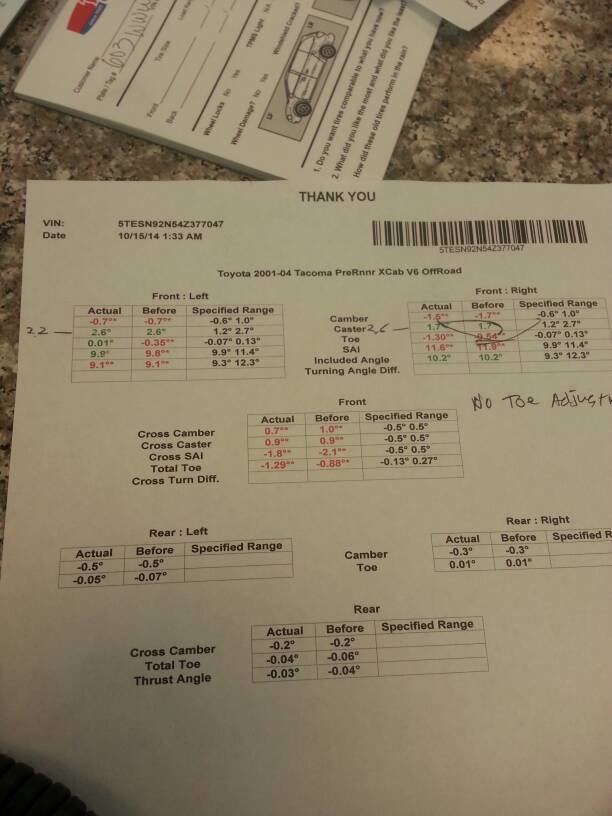 Customer Name
Plate / Tag #
Tire Size
Front
Back
Wheel Locks No Yes
TPMS Light
Wheel Damage? No Yes
Windshield Cracked?
LF
LR
1. Do you want tires comparable to what you have now?
2. What did you like the most and what did you like the
How did these old tires perform in the rain?
THANK YOU
VIN: 5TESN92N54Z377047
Date 10/15/14 1:33 AM
5TESN92N54Z377047
Toyota 2001-04 Tacoma PreRnnr XCab V6 OffRoad
Front : Left
Actual Before Specified Range
-0.7°* -0.7°* -0.6° 1.0°
2.2 — 2.6° 2.6° 1.2° 2.7°
0.01° -0.35°* -0.07° 0.13°
9.9° 9.8°* 9.9° 11.4°
9.1°* 9.1°* 9.3° 12.3°
Front : Right
Actual Before Specified Range
Camber -1.5°* -1.7°* -0.6° 1.0°
Caster 2.6 — 1.7° 1.7° 1.2° 2.7°
Toe -1.30°* -0.54°* -0.07° 0.13°
SAI 11.6°* 11.9°* 9.9° 11.4°
Included Angle 10.2° 10.2° 9.3° 12.3°
Turning Angle Diff.
No Toe Adjust
Front
Actual Before Specified Range
Cross Camber 0.7°* 1.0°* -0.5° 0.5°
Cross Caster 0.9°* 0.9°* -0.5° 0.5°
Cross SAI -1.8°* -2.1°* -0.5° 0.5°
Total Toe -1.29°* -0.88°* -0.13° 0.27°
Cross Turn Diff.
Rear : Left
Actual Before Specified Range
-0.5° -0.5°
-0.05° -0.07°
Rear : Right
Actual Before Specified R
Camber -0.3° -0.3°
Toe 0.01° 0.01°
Rear
Actual Before Specified Range
Cross Camber -0.2° -0.2°
Total Toe -0.04° -0.06°
Thrust Angle -0.03° -0.04°